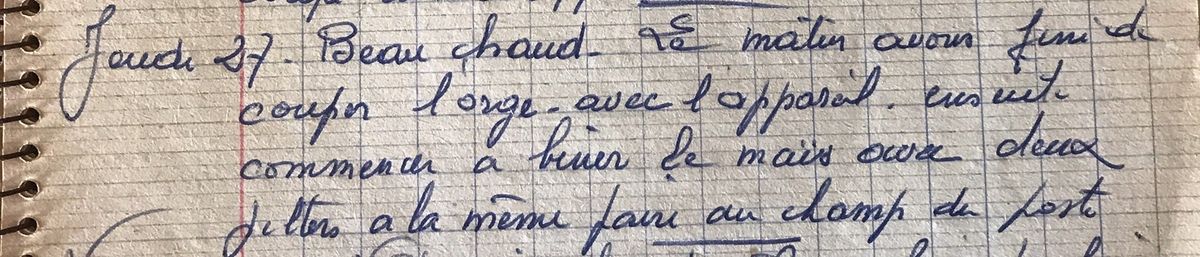 Jeudi 27. Beau chaud - le matin avons fini de
couper l'orge - avec l'appareil. ensuite
commencer a biner le maïs avec deux
a la même faire au champ du poste